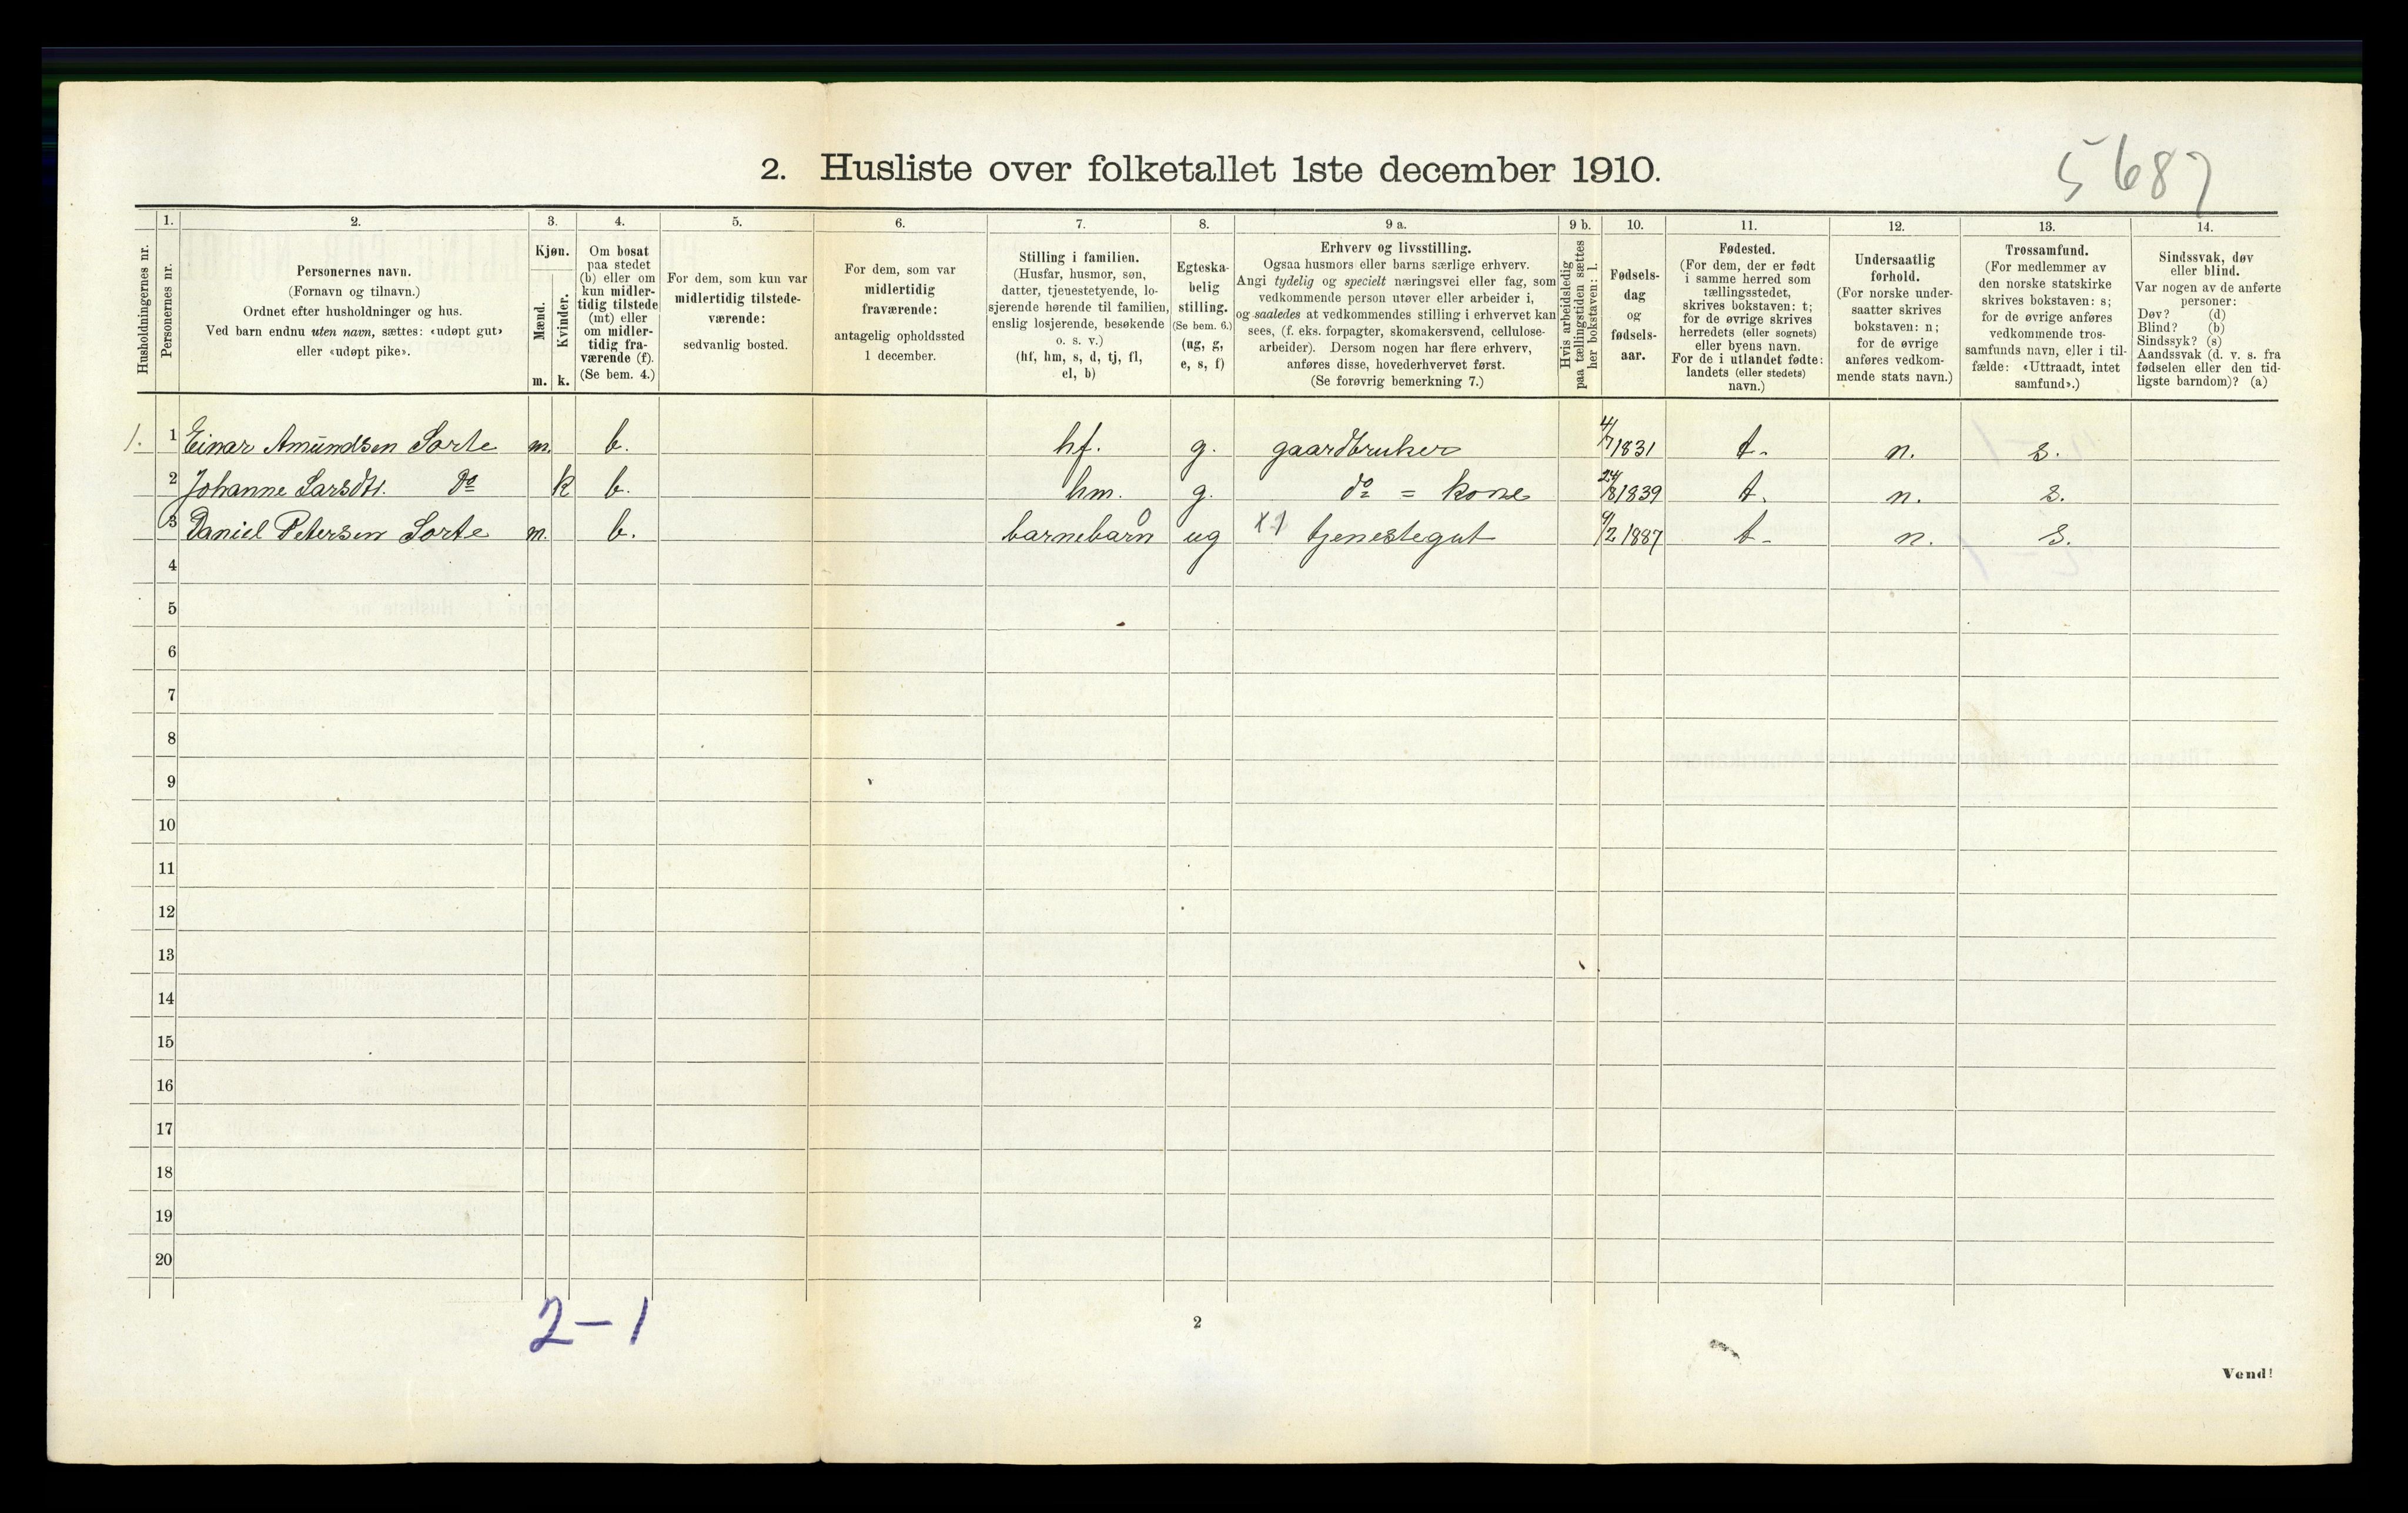 5687
2. Husliste over folketallet 1ste december 1910.
Husholdningernes nr.
1.
Personernes nr.
2.
Personernes navn.
(Fornavn og tilnavn.)
Ordnet efter husholdninger og hus.
Ved barn endnu uten navn, sættes: «udøpt gut»
eller «udøpt pike».
3.
Kjøn.
Mænd.
Kvinder.
m. k.
4.
Om bosat
paa stedet
(b) eller om
kun midler-
tidig tilstede
(mt) eller
om midler-
tidig fra-
værende (f).
(Se bem. 4.)
5.
For dem, som kun var
midlertidig tilstede-
værende:
sedvanlig bosted.
6.
For dem, som var
midlertidig
fraværende:
antagelig opholdssted
1 december.
7.
Stilling i familien.
(Husfar, husmor, søn,
datter, tjenestetyende, lo-
sjerende hørende til familien,
enslig losjerende, besøkende
o. s. v.)
(hf, hm, s, d, tj, fl,
el, b)
8.
Egteska-
belig
stilling.
(Se bem. 6.)
(ug, g,
e, s, f)
9 a.
Erhverv og livsstilling.
Ogsaa husmors eller barns særlige erhverv.
Angi tydelig og specielt næringsvei eller fag, som
vedkommende person utøver eller arbeider i,
og saaledes at vedkommendes stilling i erhvervet kan
sees, (f. eks. forpagter, skomakersvend, cellulose-
arbeider). Dersom nogen har flere erhverv,
anføres disse, hovederhvervet først.
(Se forøvrig bemerkning 7.)
9 b.
Hvis arbeidsledig
paa tællingstiden sættes
her bokstaven: l.
10.
Fødsels-
dag
og
fødsels-
aar.
11.
Fødested.
(For dem, der er født
i samme herred som
tællingsstedet,
skrives bokstaven: t;
for de øvrige skrives
herredets (eller sognets)
eller byens navn.
For de i utlandet fødte:
landets (eller stedets)
navn.)
12.
Undersaatlig
forhold.
(For norske under-
saatter skrives
bokstaven: n;
for de øvrige
anføres vedkom-
mende stats navn.)
13.
Trossamfund.
(For medlemmer av
den norske statskirke
skrives bokstaven: s;
for de øvrige anføres
vedkommende tros-
samfunds navn, eller i til-
fælde: «Uttraadt, intet
samfund».)
14.
Sindssvak, døv
eller blind.
Var nogen av de anførte
personer:
Døv? (d)
Blind? (b)
Sindssyk? (s)
Aandssvak (d. v. s. fra
fødselen eller den tid-
ligste barndom)? (a)
1. 1 Einar Amundsen Sorte m. b. hf. g. gaardbruker 4/7 1831 t. n. s.
2 Johanne Larsdtr. do k b. hm. g. do = kone 24/8 1839 t. n. s.
3 Daniel Petersen Sorte m. b. barnebarn ug tjenestegut 9/2 1887 t. n. s.
4
5
6
7
8
9
10
11
12
13
14
15
16
17
18
19
20
2-1
2
Vend!